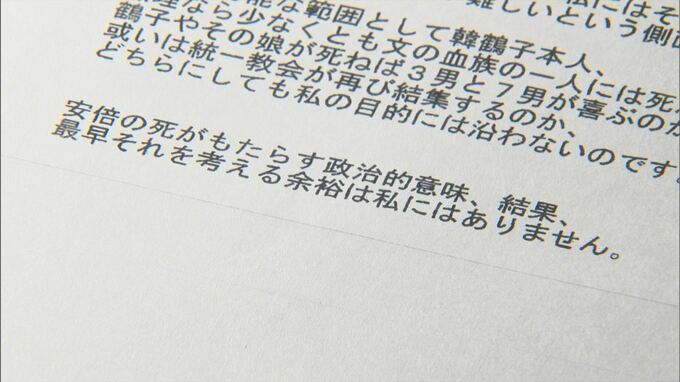 難しいという側面
能な範囲として韓鶴子本人、
無理なら少なくとも文の血族の一人には死ん
鶴子やその娘が死ねば３男と７男が喜ぶのか
或いは統一教会が再び結集するのか、
どちらにしても私の目的には沿わないのです。
安倍の死がもたらす政治的意味、結果、
最早それを考える余裕は私にはありません。